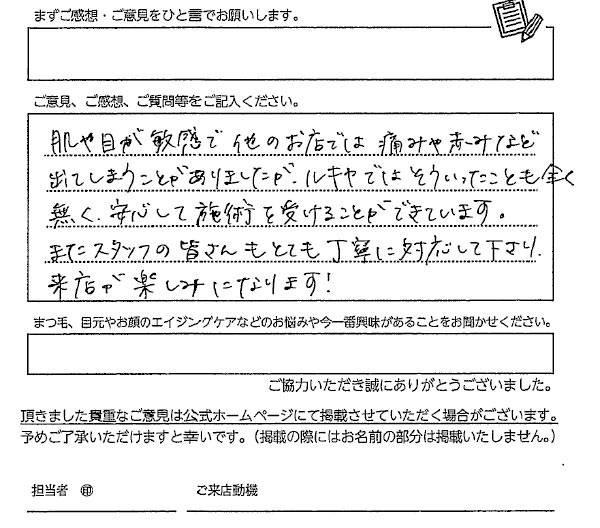 まずご感想・ご意見をひと言でお願いします。
ご意見、ご感想、ご質問等をご記入ください。
肌や目が敏感で他のお店では痛みや赤みなど
出てしまうことがありましたが、ルキヤではそういったことも全く
無く、安心して施術を受けることができています。
またスタッフの皆さんもとても丁寧に対応して下さり、
来店が楽しみになります!
まつ毛、目元やお顔のエイジングケアなどのお悩みや今一番興味があることをお聞かせください。
ご協力いただき誠にありがとうございました。
頂きました貴重なご意見は公式ホームページにて掲載させていただく場合がございます。
予めご了承いただけますと幸いです。(掲載の際にはお名前の部分は掲載いたしません。)
担当者 ㊞ ご来店動機